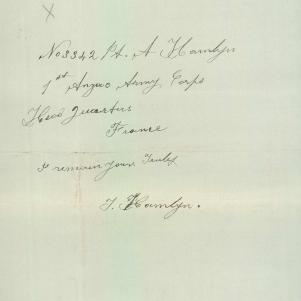 X
No 3342 Pt. A Hamlyn
1st Anzac Army Corps
Head Quarters
France
I remain yours Truly
J. Hamlyn.